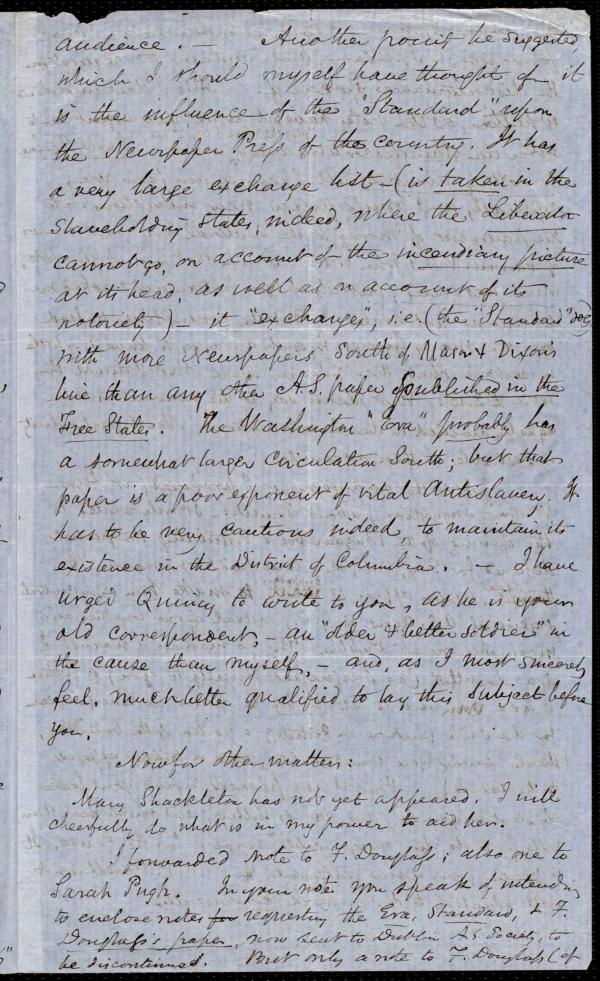 audience. — Another point he suggested,
which I should myself have thought of it
is the influence of the "Standard" upon
the Newspaper Press of the country. It has
a very large exchange list – (is taken in the
Slaveholding States, indeed, where the Liberator
cannot go, on account of the incendiary picture
at its head, as well as on account of its
notoriety) – it "exchanges", i.e. (the "Standard" does)
with more Newspapers South of Mason & Dixon's
line than any other A.S. paper published in the
Free States. The Washington "Era" probably has
a somewhat larger Circulation South; but that
paper is a poor exponent of vital Antislavery. It
has to be very cautious indeed, to maintain its
existence in the District of Columbia. — I have
urged Quincy to write to you, as he is your
old correspondent, – an "older & better soldier" in
the cause than myself, – and, as I most sincerely
feel, much better qualified to lay this subject before
you.
Now for other matters:
Mary Shackleton has not yet appeared. I will
cheerfully do what is in my power to aid her.
I forwarded note to F. Douglass; also one to
Sarah Pugh. In your note you speak of intending
to enclose notes for requesting the Era, Standard, & F.
Douglass's paper, now sent to Dublin A.S. Society, to
be discontinued. But only a note to F. Douglass (of